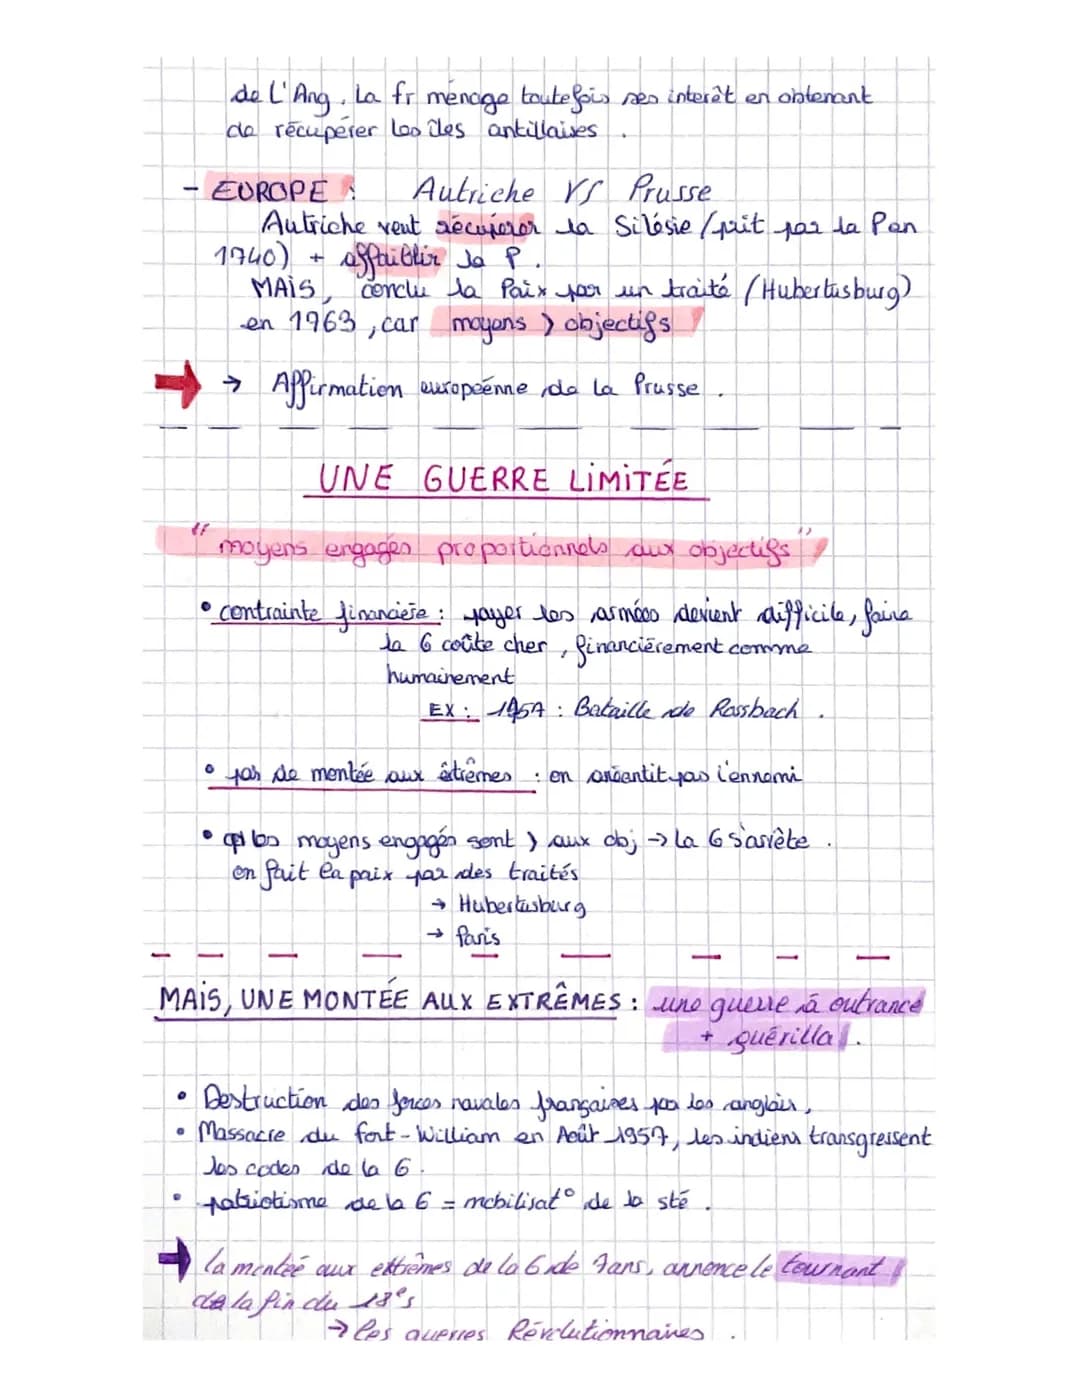 de L'Ang. La fr ménage toutefois ses interêt en obtenant
de récupérer les îles antillaises .
- EUROPE : Autriche VS Prusse
Autriche veut récupérer la Silésie (prit par la P en
1740) + affaiblir la P.
MAIS, conclu la Paix par un traité (Hubertusburg)
en 1963, car moyens > objectifs
→ → Affirmation européenne de la Prusse .
UNE GUERRE LIMITÉE
"moyens engagés proportionnels aux objectifs"
• contrainte financière : payer les armées devient difficile, faire
la G coûte cher, financièrement comme
humainement
EX : 1957 : Bataille de Rossbach .
• pas de montée aux êtrêmes : on anéantit pas l'ennemi
• qd les moyens engagés sont > aux obj → la G s'arrête .
on fait la paix par des traités
→ Hubertusburg
→ Paris
MAIS, UNE MONTÉE AUX EXTRÊMES : une guerre à outrance
+ guérilla .
• Destruction des forces navales françaises par les anglais,
• Massacre du fort-William en Août 1957, les indiens transgressent
les codes de la G.
• patriotisme de la G = mobilisat° de la sté .
→ la montée aux extrêmes de la G de 7ans, annonce le tournant
de la fin du 18e s
→ les guerres Révolutionnaires .